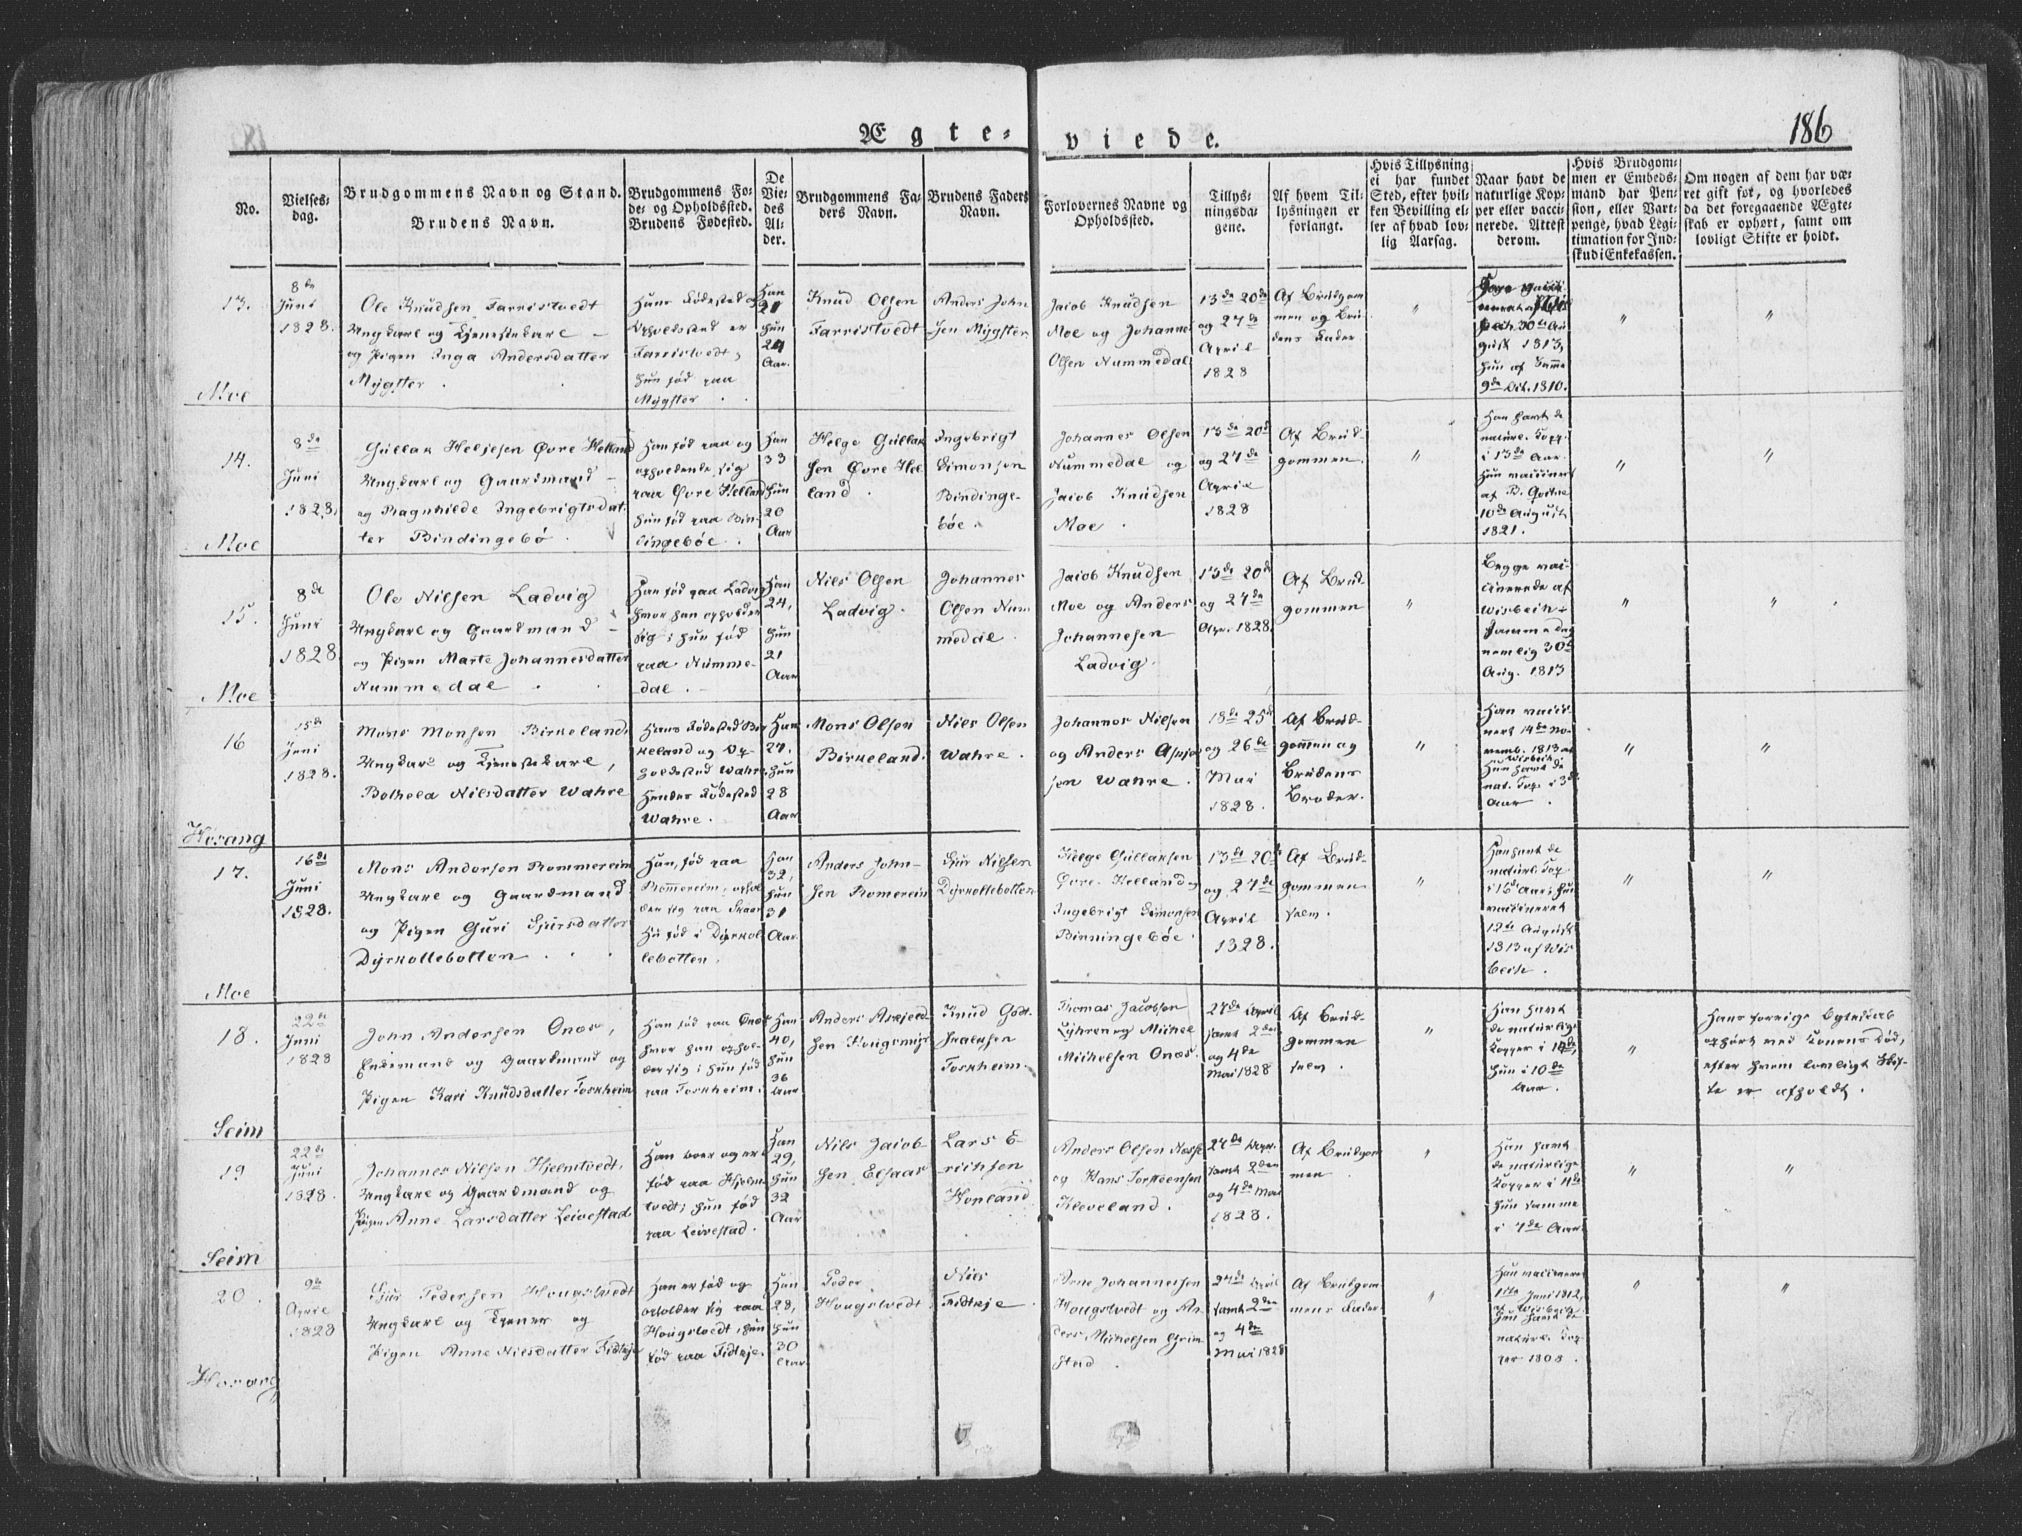 Ægte-
viede.
186
No.
Vielses-
dag.
Brudgommens Navn og Stand.
Brudens Navn.
Brudgommens Fø-
de- og Opholdssted.
Brudens Fødested.
De
Vie-
des
Al-
der.
Brudgommens Fa-
ders Navn.
Brudens Faders
Navn.
Forlovernes Navne og
Opholdssted.
Tillys-
ningsda-
gene.
Af hvem Til-
lysningen er
forlangt.
Hvis Tillysning
ei har fundet
Sted, efter hvil-
ken Bevilling el-
ler af hvad lov-
lig Aarsag.
Naar havt de
naturlige Kop-
per eller vacci-
nerede. Attest
derom.
Hvis Brudgom-
men er Embeds-
mand har Pen-
sion, eller Vart-
penge, hvad Legi-
timation for Ind-
skud i Enkekassen.
Om nogen af dem har væ-
ret gift før, og hvorledes
da det foregaaende Ægte-
skab er ophørt, samt om
lovligt Skifte er holdt.
13.
Moe
8de
Juni
1828.
Ole Knudsen Farristvedt
Ungkarl og Tjenestekarl
og Pigen Inga Andersdatter
Mygster
Hans Fødested og
Opholdssted er
Farristvedt,
hun fød paa
Mygster
Han
21
hun
24
Aar.
Knud Olsen
Farristvedt
Anders John
sen Mygster
Jacob Knudsen
Moe og Johannes
Olsen Nummedal
13de 20de
og 27de
April
1828
Af Brudgom
men og Bru
dens Fader
30te Au
gust 1813,
hun af samme
9de Oct. 1810.
14.
Moe
8de
Juni
1828.
Gullak Heljesen Øvre Helland
Ungkarl og Gaardmand
og Ragnhilde Ingebrigtsdat
ter Bindingebø
Han fød paa og
opholdende sig
paa Øvre Helland
hun fød paa Bin
dingebøe.
Han
33
hun
20
Aar
Helge Gullak
sen Øvre Hel
land
Ingebrigt
Simonsen
Bindinge-
bøe.
Johannes Olsen
Nummedal og
Jacob Knudsen
Moe.
13de 20de
og 27de
April
1828
Af Brud-
gommen.
Han havt de
naturl. Kopp.
i 13de Aar.
hun vaccineret
af B. Qvitne
10de August
1821.
15.
Moe
8de
Juni
1828
Ole Nilsen Ladvig
Ungkarl og Gaardmand
og Pigen Marte Johannesdatter
Nummedal
Han fød paa Ladvig
hvor han opholder
sig; hun fød
paa Numme-
dal.
Han
24,
hun
21
Aar
Nils Olsen
Ladvig.
Johannes
Olsen Num
medal
Jacob Knudsen
Moe og Anders
Johannesen
Ladvig.
13de 20de
og 27de
Apr. 1828.
Af Brud-
gommen
Begge vac-
cinerede af
Wisbech
samme dag
nemlig 30te
Aug. 1813
16
Hosang
15de
Juni
1828.
Mons Monsen Birkeland,
Ungkarl og Tjenestekarl,
Bothela Nilsdatter Wahre
Hans Fødested Bir
keland og Op-
holdssted Wahre,
hendes Fødested
Wahre.
Han
27.
hun
28
Aar
Mons Olsen
Birkeland.
Nils Olsen
Wahre.
Johannes Nilsen
og Anders
sen Wahre.
18de 25de
og 26de
Mai
1828.
Af Brud-
gommen og
Brudens
Broder.
Han vacci
neret 14de No-
vemb. 1813 af
Wisbech;
hun havt de
nat. Kop. i 3de
Aar.
17.
Moe
16de
Juni
1828.
Mons Andersen Rommereim
Ungkarl og Gaardmand
og Pigen Guri Sjursdatter
Dyrkollebotten
Han, fød paa
Romereim, ophol
der sig paa
Hu fød i Dyrkol
lebotten.
Han
32,
hun
31
Aar
Anders John-
sen Romereim
Sjur Nilsen
Dyrkollebotten
Helge Gullaksen
Øvre Helland og
Ingebrigt Simonsen
Binningebøe.
13de 20de
og 27de
April
1828.
Af Brud-
gommen
selv.
Han havt de
naturl. Kop
i 16de Aar; hun
vaccineret
12te August
1813 af Wis
bech.
18.
Seim
22de
Juni
1828
John Andersen Onæs,
Enkemand og Gaardmand og
Pigen Kari Knudsdatter Toskheim
Han fød paa Onæs
hvor han ophol-
der sig; hun fød
paa Toskheim.
Han
40,
hun
36
Aar
Anders Askjeld-
sen Hougsmyr
Knud Godt-
skalksen
Toskheim.
Thomas Jacobsen
Kyhren og Mickel
Mickelsen Onæs.
27de April
samt 2den
og 4de
Mai 1828
Af Brud-
gommen
selv.
Han havt
de naturlige
Kopper i 14de,
hun i 10de
Aar.
Hans forrige Egteskab
ophørt ved Konens Død,
efter hvem lovligt Skif-
te er afholdt.
19
Seim
22de
Juni
1828.
Johannes Nilsen Hjelmtvedt,
Ungkarl og Gaardmand og
Pigen Anne Larsdatter Leivestad
Han boer og er
fød paa Hjelm
tvedt; hun fød
paa Leivestad.
Han
29,
hun
32
Aar
Nils Jacob
sen Elsaas
Lars E-
richsen
Honland
Anders Olsen
og Hans Torsteensen
Kleveland.
27de Apr.
samt 2den
og 4de Mai
1828.
Af Brudgom
men
Han havt
de naturlige
Kopper i 4de
hun samme
i 7de Aar
20.
Hosang
9de
April
1828
Sjur Pedersen Hougstvedt
Ungkarl og Tjener og
Pigen Anne Nilsdatter Fidtkje
Han er fød og
opholder sig paa
Hougstvedt, hun
fød paa Fidtkje.
Han
28,
hun
30
Aar
Peder
Hougstvedt
Nils
Fidtkje
Arne Johannessen
Hougstvedt og An
ders Mickelsen Grim
stad.
27de April
samt 2den
og 4de
Mai 1828
Af Brudgom
mens Fader
Han vaccineret
11te Juni 1812,
af Wisbech,
hun havt de
naturl. Kop
per 1808.